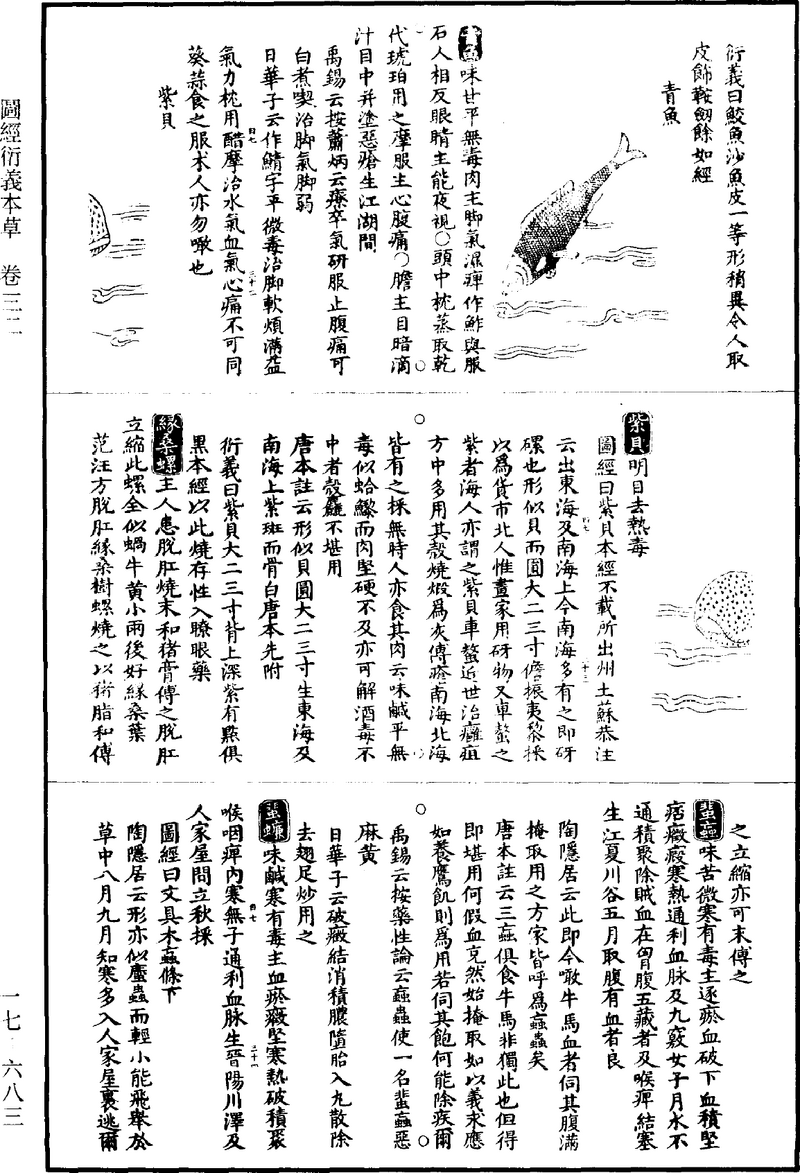 圖經衍義本草　卷三二
一七・六八三
衍義曰鮫魚沙魚皮一等形稍異今人取
皮飾鞍劒餘如經
青魚
青魚味甘平無毒肉主脚氣濕痺作鮓與服
石人相反眼睛主能夜視○頭中枕蒸取乾
代琥珀用之摩服主心腹痛○膽主目暗滴
汁目中并塗惡瘡生江湖間
禹錫云按蕭炳云療卒氣研服止腹痛可
白煮喫治脚氣脚弱
日華子云作鯖字平微毒治脚軟煩滿益
氣力枕用醋摩治水氣血氣心痛不可同
葵蒜食之服朮人亦勿噉也
紫貝
紫貝明目去熱毒
圖經曰紫貝本經不載所出州土蘇恭注
云出東海及南海上今南海多有之即砑
螺也形似貝而圓大二三寸儋振夷黎採
以爲貨市北人惟畫家用砑物又車螯之
紫者海人亦謂之紫貝車螯近世治癰疽
方中多用其殼燒煅爲灰傅瘡南海北海
皆有之採無時人亦食其肉云味鹹平無
毒似蛤蠣而肉堅硬不及亦可解酒毒不
中者殼麤不堪用
唐本註云形似貝圓大二三寸生東海及
南海上紫斑而骨白唐本先附
衍義曰紫貝大二三寸背上深紫有點俱
黑本經以此燒存性入瞭眼藥
緣桑螺主人患脫肛燒末和猪膏傅之脫肛
立縮此螺全似蝸牛黃小雨後好緣桑葉
范汪方脫肛緣桑樹螺燒之以猪脂和傅
之立縮亦可末傅之
蜚蝱味苦微寒有毒主逐瘀血破下血積堅
痞癥瘕寒熱通利血脉及九竅女子月水不
通積聚除賊血在胷腹五藏者及喉痺結塞
生江夏川谷五月取腹有血者良
陶隱居云此即今噉牛馬血者伺其腹滿
掩取用之方家皆呼爲蝱蟲矣
唐本註云三蝱俱食牛馬非獨此也但得
即堪用何假血充然始掩取如以義求應
如養鷹飢則爲用若伺其飽何能除疾爾
禹錫云按藥性論云蝱蟲使一名蜚蝱惡
麻黃
日華子云破癥結消積膿墮胎入丸散除
去翅足炒用之
蜚蠊味鹹寒有毒主血瘀癥堅寒熱破積聚
喉咽痺內寒無子通利血脉生晉陽川澤及
人家屋間立秋採
圖經曰文具木蝱條下
陶隱居云形亦似䗪蟲而輕小能飛舉於
草中八月九月知寒多入人家屋裏逃爾